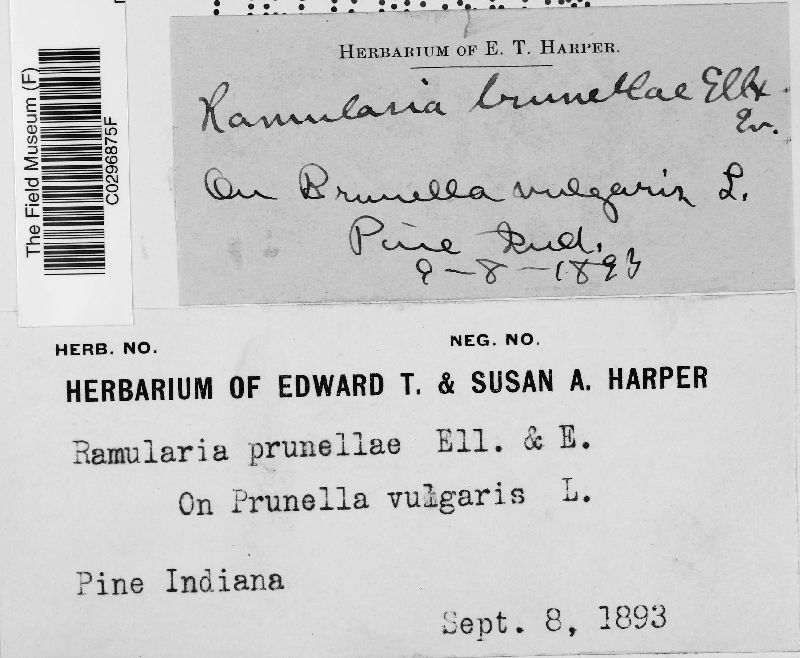 The Field Museum (F)
C0296875F
HERBARIUM OF E. T. HARPER.
Ramularia brunellae Ell &
Ev.
On Brunella vulgaris L.
Pine Ind.
9-8-1893
HERB. NO.
NEG. NO.
HERBARIUM OF EDWARD T. & SUSAN A. HARPER
Ramularia prunellae Ell. & E.
On Prunella vulgaris L.
Pine Indiana
Sept. 8, 1893